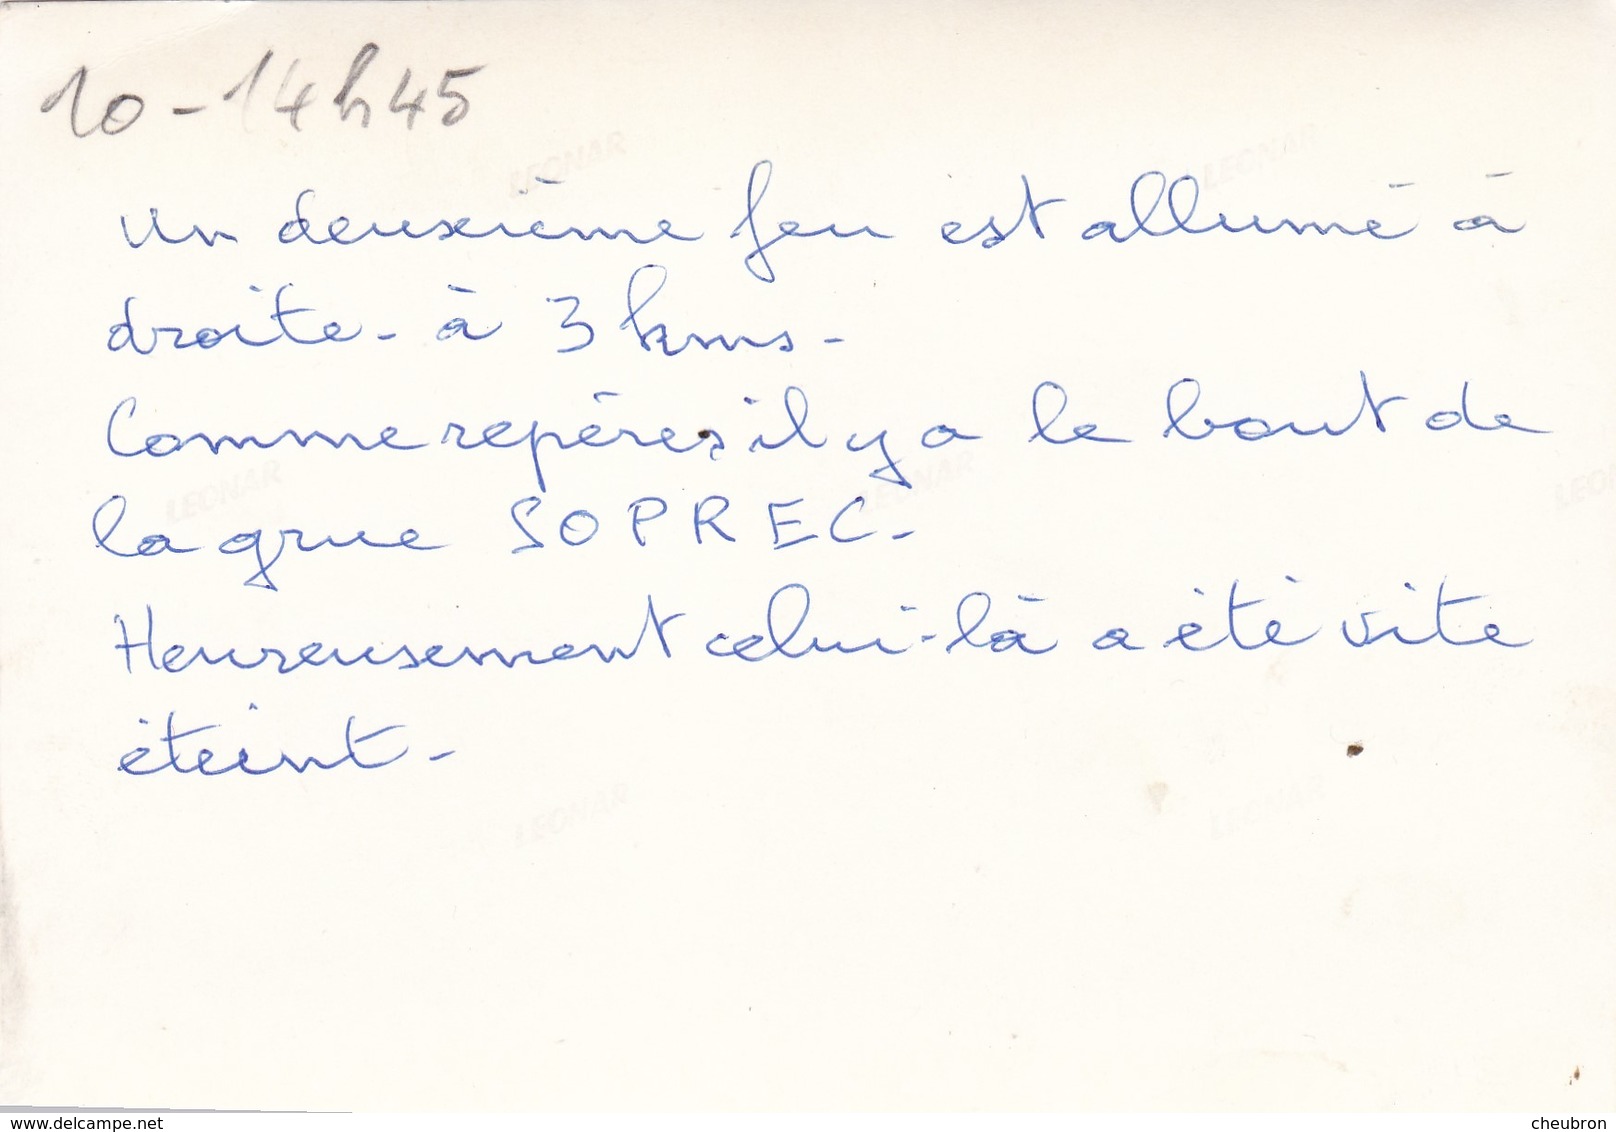 10 - 14h45
LEONAR
LEONAR
Un deuxième feu est allumé à
droite - à 3 kms -
Comme repères il y a le bout de
LEONAR
LEONAR
LEO
la grue SOPREC -
Heureusement celui-là a été vite
éteint -
LEONAR
LEONAR
www.delcampe.net
cheubron